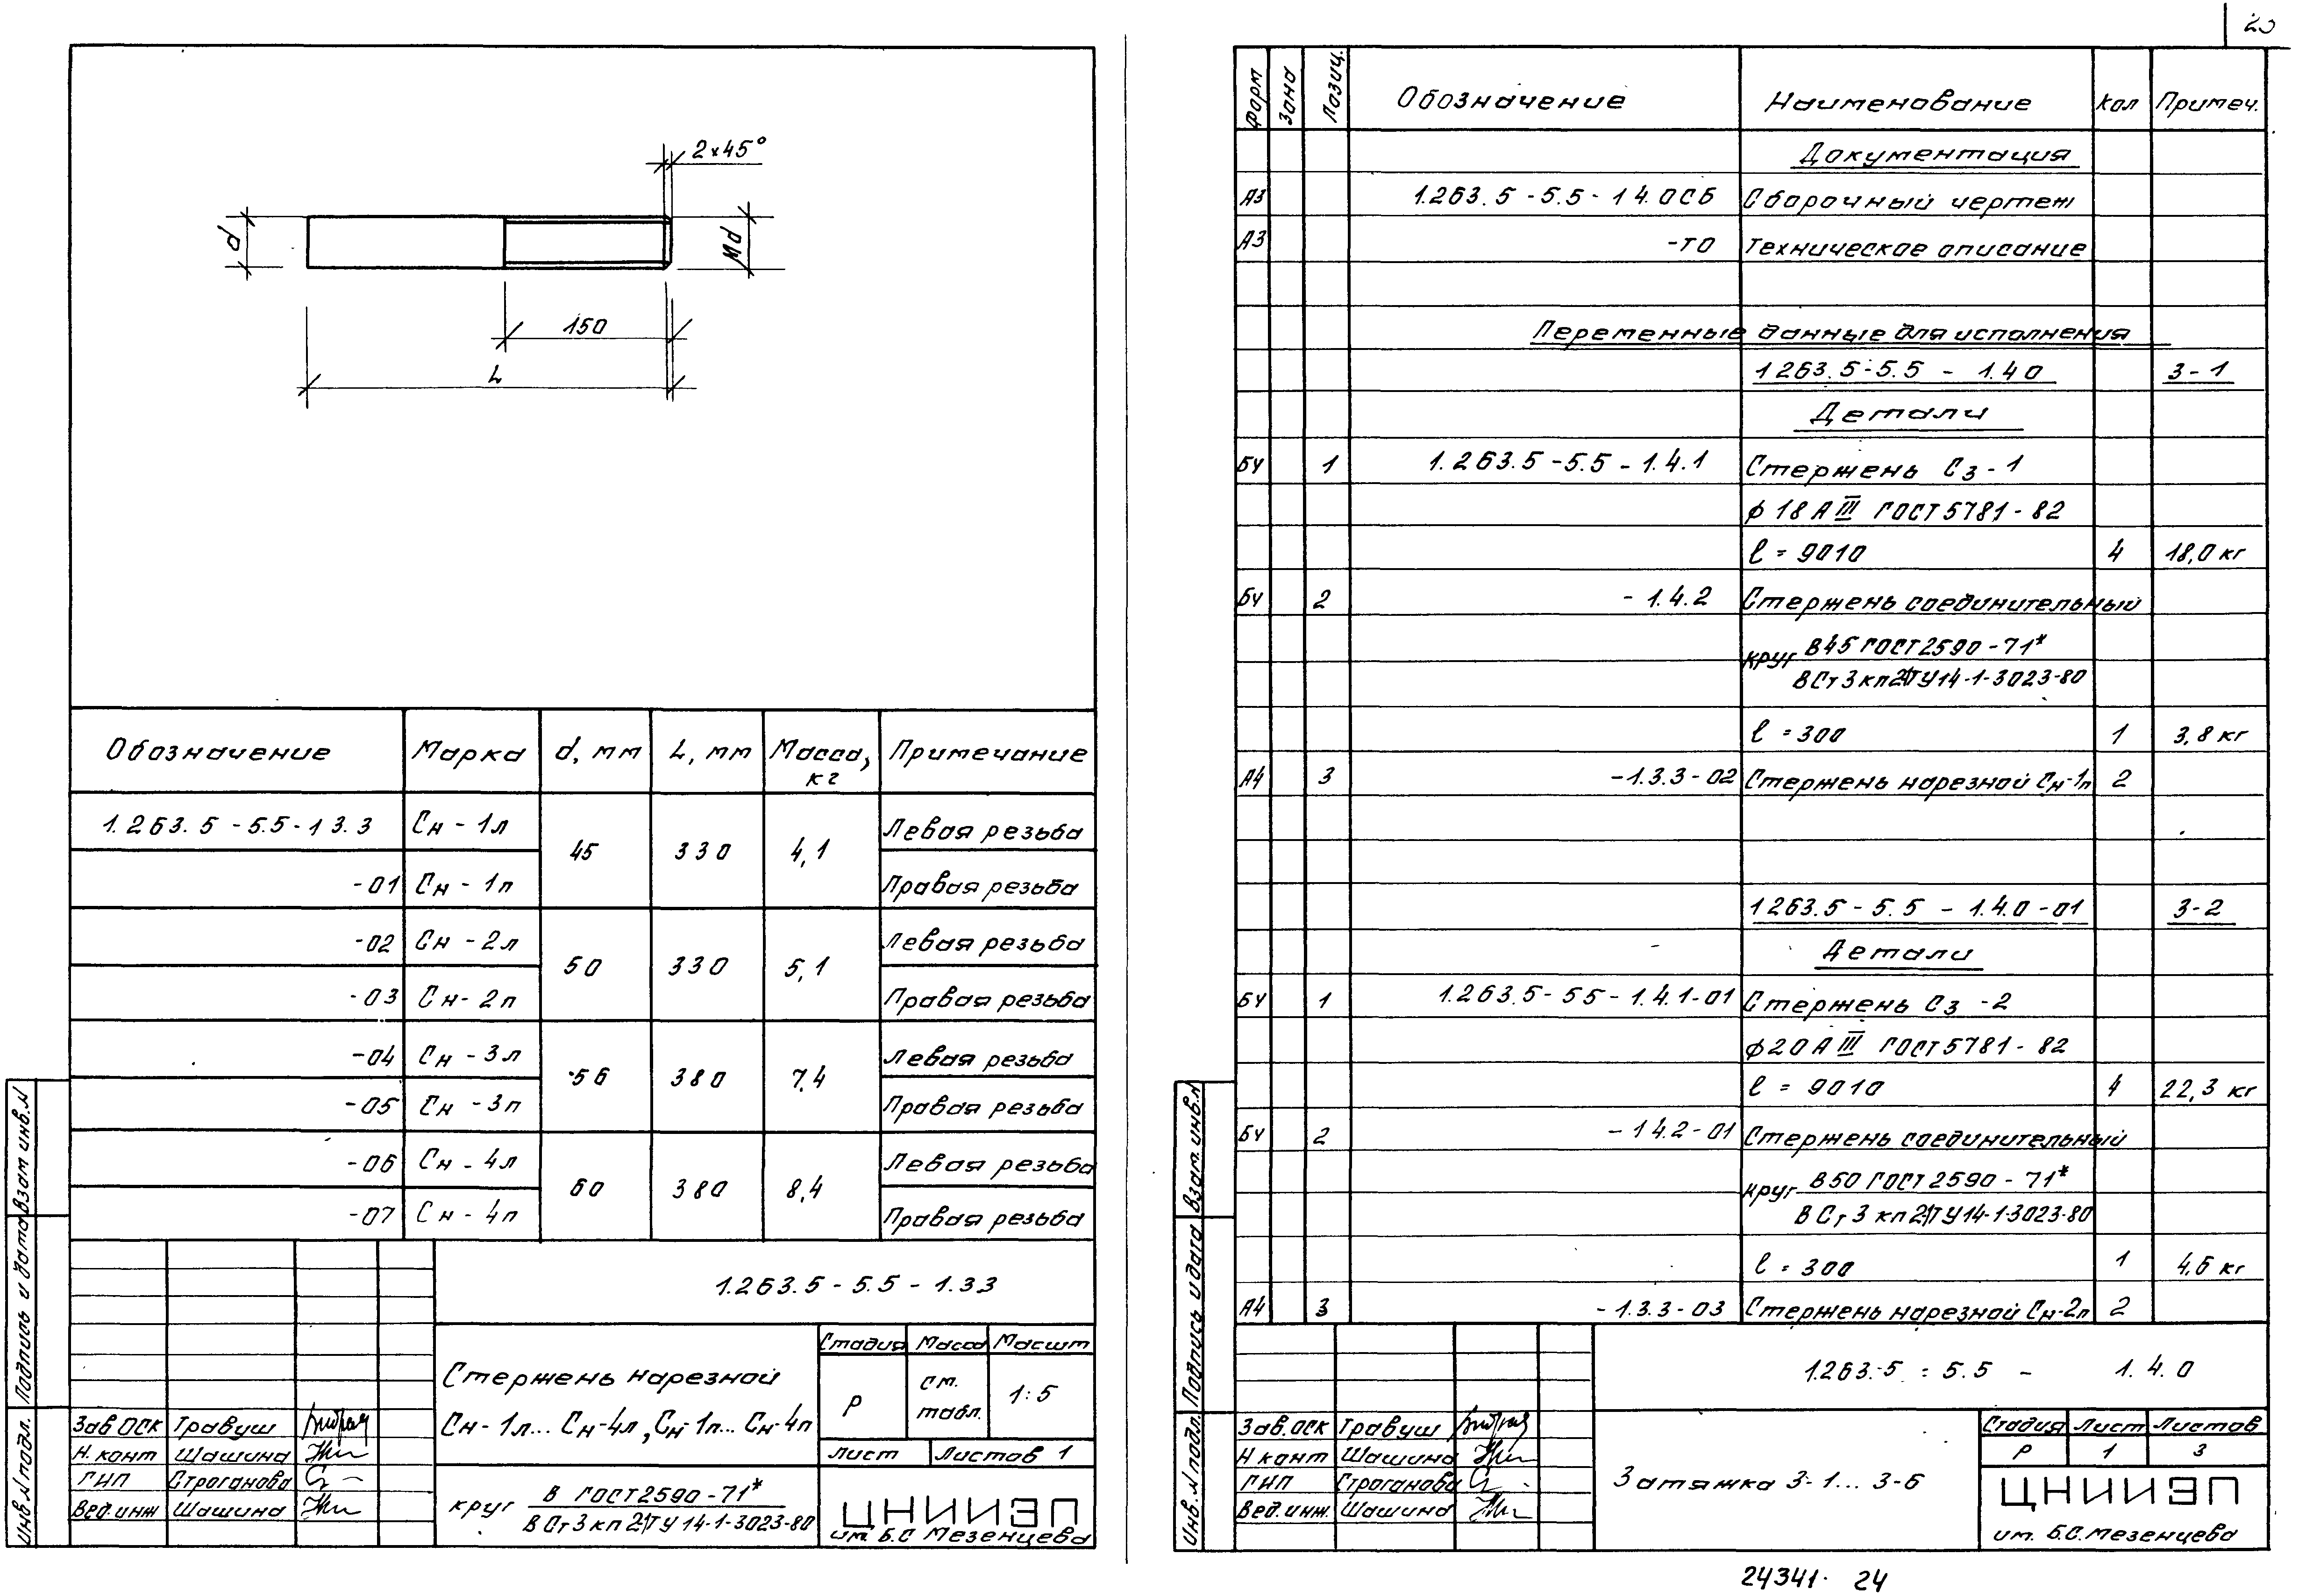 2×45°
d
Мd
150
L
Обозначение Марка d, мм L, мм Масса, кг Примечание
1.263.5-5.5-1 3.3 Сн-1л 45 330 4,1 Левая резьба
-01 Сн-1п Правая резьба
-02 Сн-2л 50 330 5,1 Левая резьба
-03 Сн-2п Правая резьба
-04 Сн-3л 56 380 7,4 Левая резьба
-05 Сн-3п Правая резьба
-06 Сн-4л 60 380 8,4 Левая резьба
-07 Сн-4п Правая резьба
1.263.5-5.5-1.3.3
Стержень нарезной
Сн-1л...Сн-4л, Сн-1п...Сн-4п
Стадия Масса Масшт
Р см. табл. 1:5
Лист Листов 1
круг В ГОСТ 2590-71*
ВСт3кп2 ТУ14-1-3023-80
ЦНИИЭП
им. Б.С Мезенцева
Зав ОСК Травуш
Н.конт Шашина
ГИП Строганова
Вед.инж Шашина
Инв.№подл. Подпись и дата Взам инв.№
Форм Зона Позиц. Обозначение Наименование Кол Примеч.
Документация
А3 1.263.5-5.5-1 4.0СБ Сборочный чертеж
А3 -ТО Техническое описание
Переменные данные для исполнения
1 263.5-5.5 - 1.4 0 З-1
Детали
БЧ 1 1.263.5-5.5-1.4.1 Стержень Сз-1
ф18АIII ГОСТ 5781-82
ℓ=9010 4 18,0 кг
БЧ 2 -1.4.2 Стержень соединительный
круг В45 ГОСТ 2590-71*
ВСт3кп2 ТУ14-1-3023-80
ℓ=300 1 3,8 кг
А4 3 -1.3.3-02 Стержень нарезной Сн-1п 2
1 263.5-5.5-1.4.0-01 З-2
Детали
БЧ 1 1.263.5-5 5-1.4.1-01 Стержень Сз-2
ф20АIII ГОСТ 5781-82
ℓ=9010 4 22,3 кг
БЧ 2 -1 4.2-01 Стержень соединительный
круг В50 ГОСТ 2590-71*
ВСт3кп2 ТУ14-1-3023-80
ℓ=300 1 4,6 кг
А4 3 -1.3.3-03 Стержень нарезной Сн-2п 2
1.263.5-5.5 - 1.4.0
Затяжка З-1...З-6
Стадия Лист Листов
Р 1 3
ЦНИИЭП
им. Б.С.Мезенцева
Зав.ОСК Травуш
Н конт Шашина
ГИП Строганова
Вед.инж. Шашина
Инв.№подл. Подпись и дата Взам.инв.№
24341 24